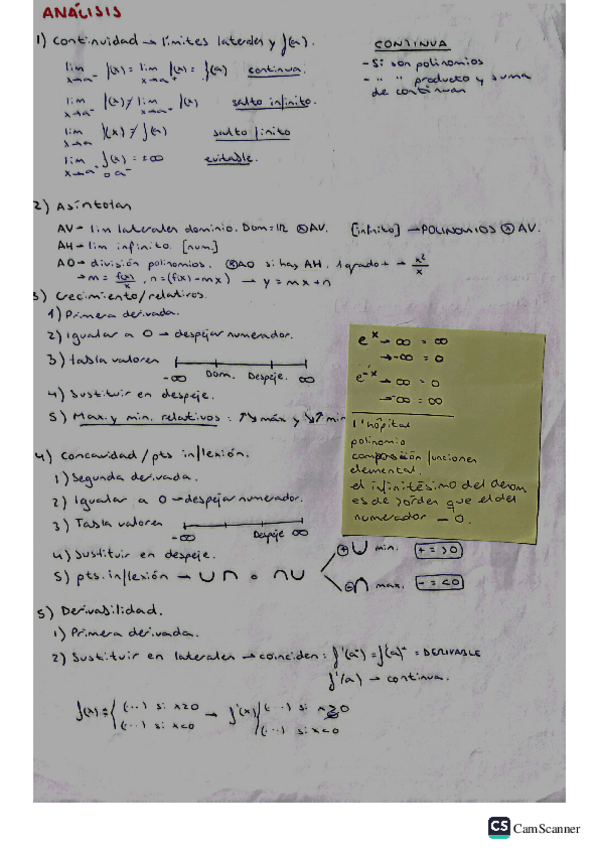 ANÁLISIS
1) Continuidad → límites laterales y f(a).
lim x→a⁻ f(x) = lim x→a⁺ f(x) = f(a) continua.
lim x→a⁻ f(x) ≠ lim x→a⁺ f(x) salto infinito.
lim x→a⁻ f(x) ≠ f(a) salto finito
lim x→a⁻ o a⁻ f(x) = ±∞ evitable.
CONTINUA
- Si son polinomios
- " " producto y suma
de continuan
2) Asíntotan
AV → lim laterales dominio. Dom = ℝ ⊗ AV. [infinito] → POLINOMIOS ⊗ AV.
AH → lim infinito. [num.]
AO → división polinomios. ⊗AO si has AH. 1 grado + → x²/x
→ m = f(x)/x , n = (f(x) - mx) → y = mx + n
3) Crecimiento/relativos.
1) Primera derivada.
2) Igualar a 0 → despejar numerador.
3) tabla valores
-∞ Dom. Despeje. ∞
4) Sustituir en despeje.
5) Max. y min. relativos : ↑↘ máx y ↘↑ min
eˣ → ∞ = ∞
→ -∞ = 0
e⁻ˣ → ∞ = 0
→ -∞ = ∞
l'hôpital
polinomio
composición funciones
elemental.
el infinitésimo del denom
es de > orden que el del
numerador — 0.
4) Concavidad / pts inflexión.
1) Segunda derivada.
2) Igualar a 0 → despejar numerador.
3) Tabla valores
-∞ Despeje ∞
4) Sustituir en despeje.
5) pts. inflexión → ∪∩ o ∩∪
⊕ ∪ min. + = >0
⊖ ∩ max. - = <0
5) Derivabilidad.
1) Primera derivada.
2) Sustituir en laterales → coinciden : f'(a⁺) = f(a)⁻ = DERIVABLE
f'(a) → continua.
f(x) = { (...) si x≥0 → f'(x) { (...) si x≥0
(...) si x<0 (...) si x<0
CS CamScanner